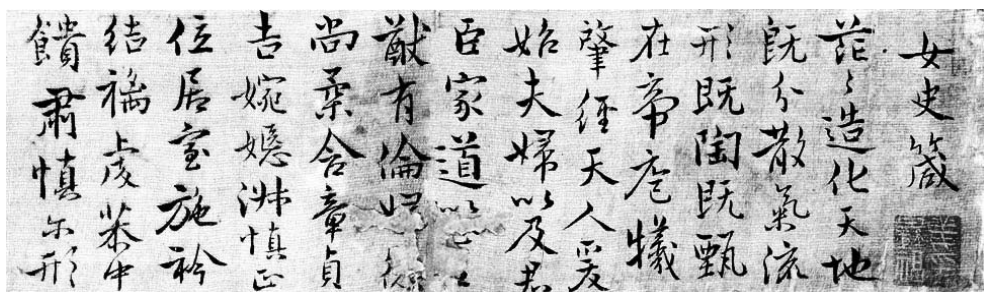 女史箴
茫〻造化天地
既分散氣流
形既陶既甄
在帝庖犧
肇經天人爰
始夫婦以及君
臣家道以
猷有倫婦
尚柔含章貞
吉婉嫕淑慎正
位居室施衿
結褵虔恭中
饋肅慎尔形